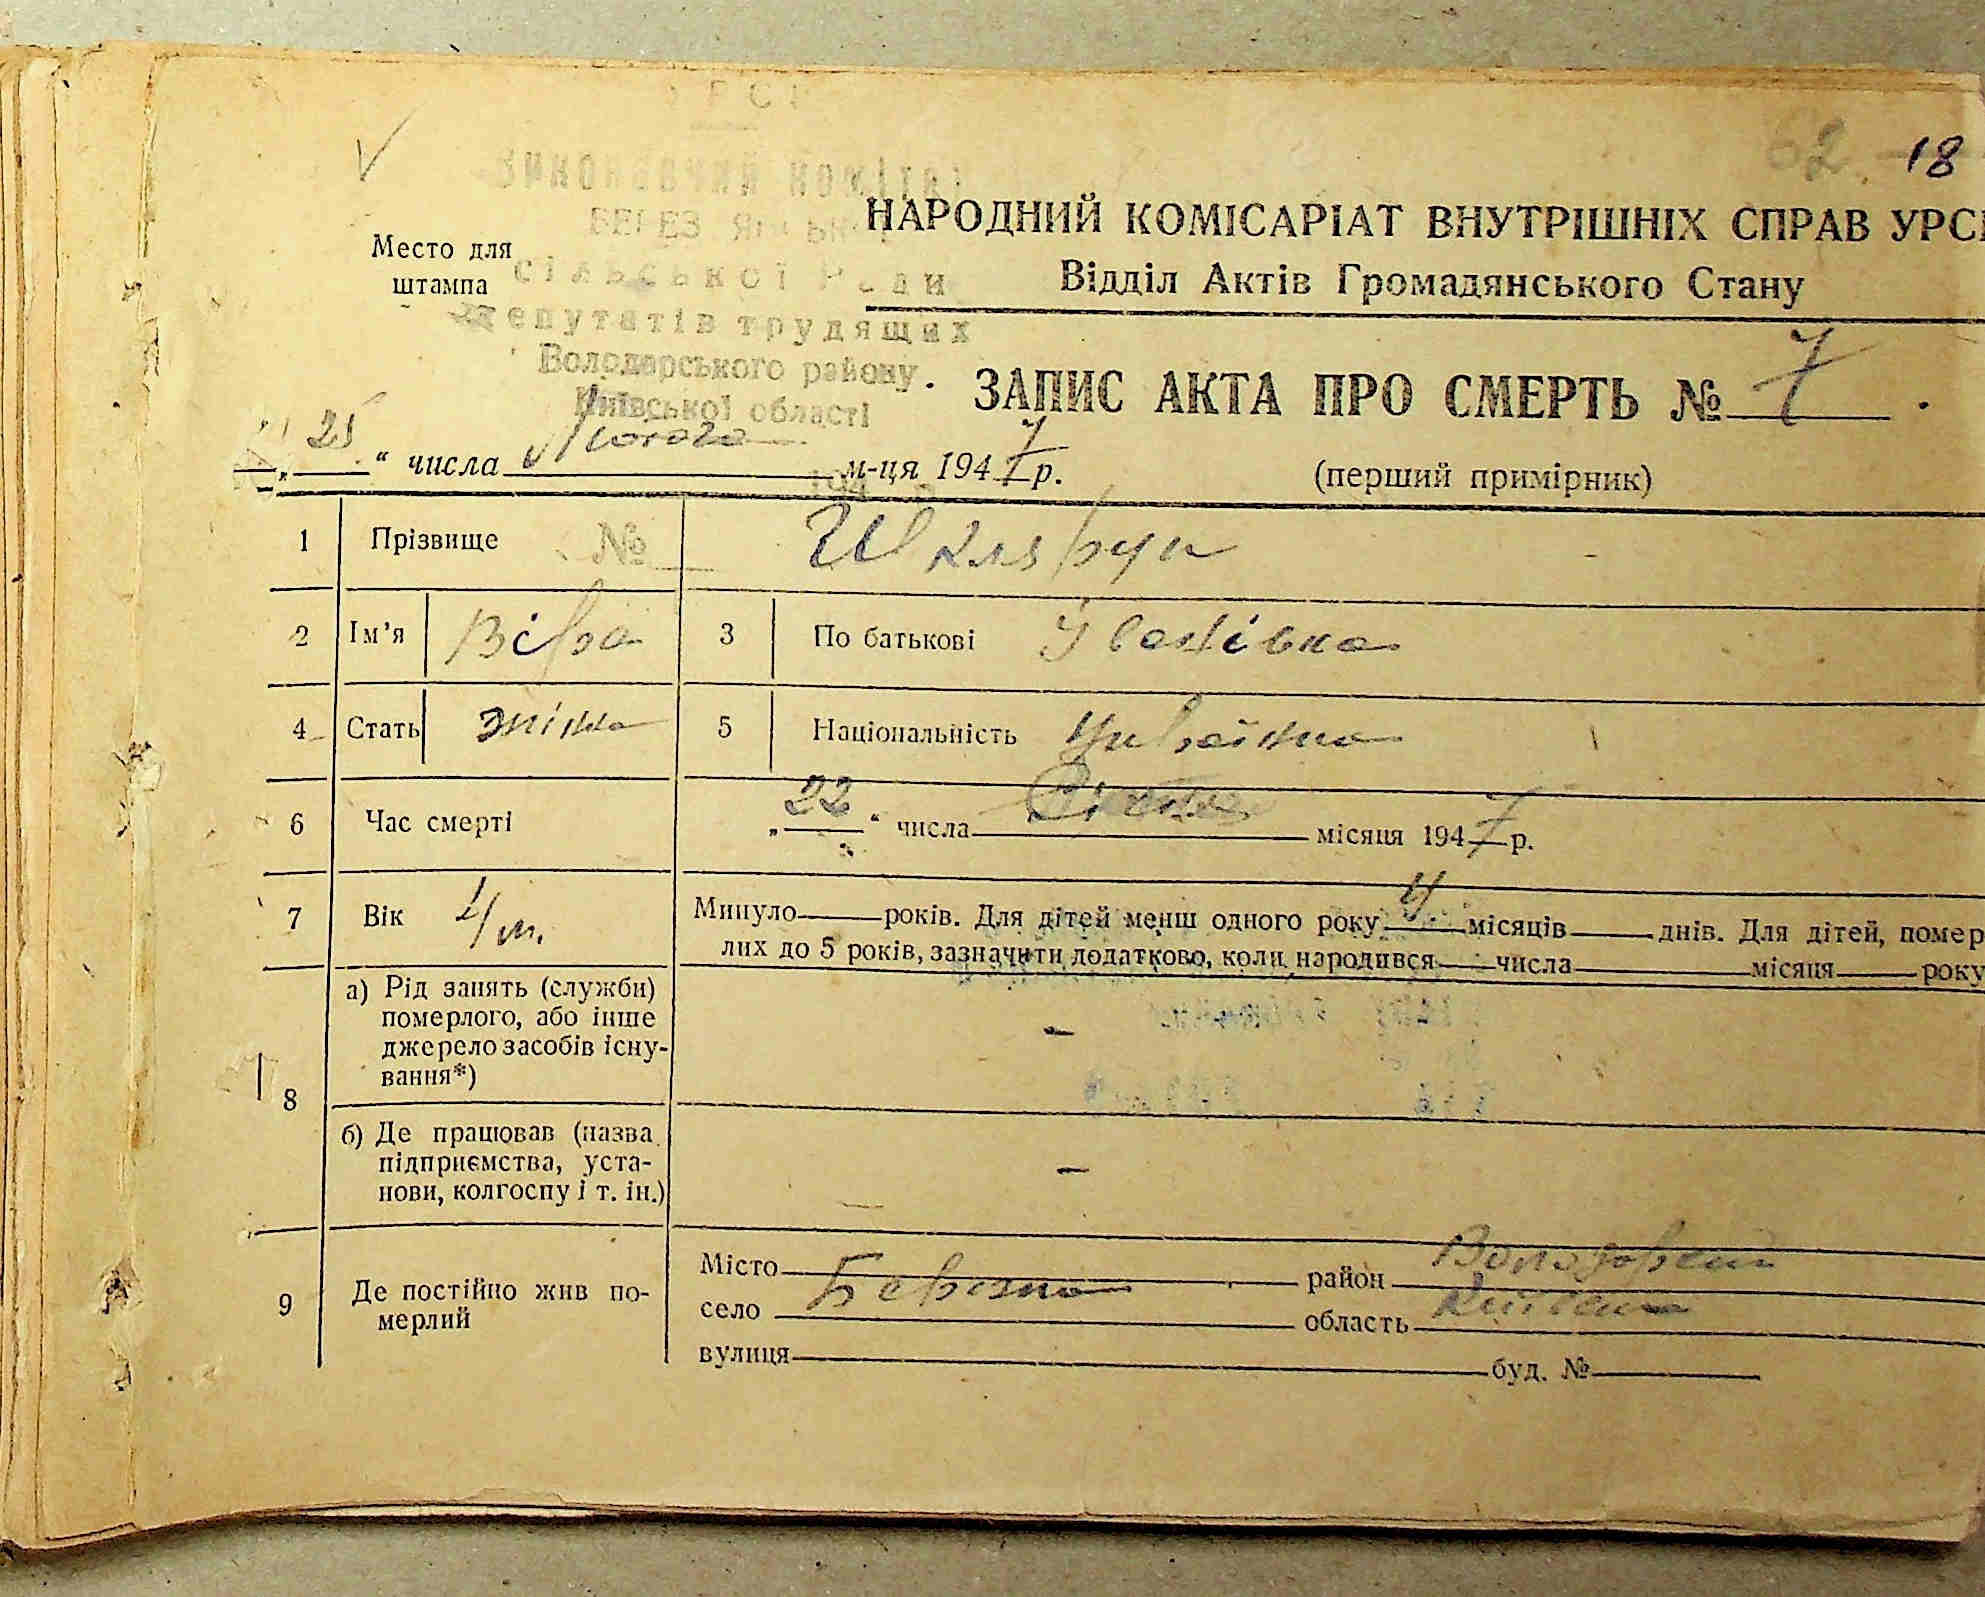 УРСР
62 18
Виконавчий комітет
сільської Ради
депутатів трудящих
Володарського району
Київської області
Место для
штампа
НАРОДНИЙ КОМІСАРІАТ ВНУТРІШНІХ СПРАВ УРСР
Відділ Актів Громадянського Стану
ЗАПИС АКТА ПРО СМЕРТЬ № 7
„ 25 “ числа Лютого м-ця 1947 р.
(перший примірник)
1 Прізвище Шклярук
№
2 Ім’я Віра 3 По батькові Іванівна
4 Стать жінка 5 Національність Українка
6 Час смерті „ 22 “ числа місяця 1947 р.
7 Вік 4 м. Минуло — років. Для дітей менш одного року 4 місяців — днів. Для дітей, помер-
лих до 5 років, зазначити додатково, коли народився — числа — місяця — року
8 а) Рід занять (служби)
померлого, або інше
джерело засобів існу-
вання*) –
б) Де працював (назва
підприємства, уста-
нови, колгоспу і т. ін.) –
9 Де постійно жив по-
мерлий
Місто район Володарський
село Березна область Київська
вулиця буд. №